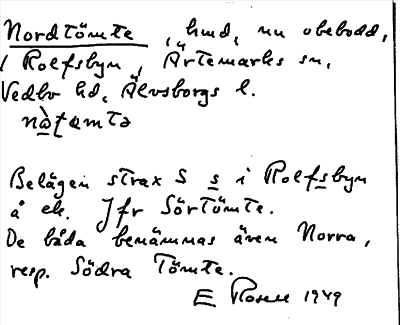 Nordtömte, hmd, nu obebodd,
i Rolfsbyn, Ärtemarks sn,
Vedbo hd, Älvsborgs l.
Belägen strax S s i Rolfsbyn
å ek. Jfr Sörtömte.
De båda benämnas även Norra,
resp. Södra Tömte.
E Rosell 1949